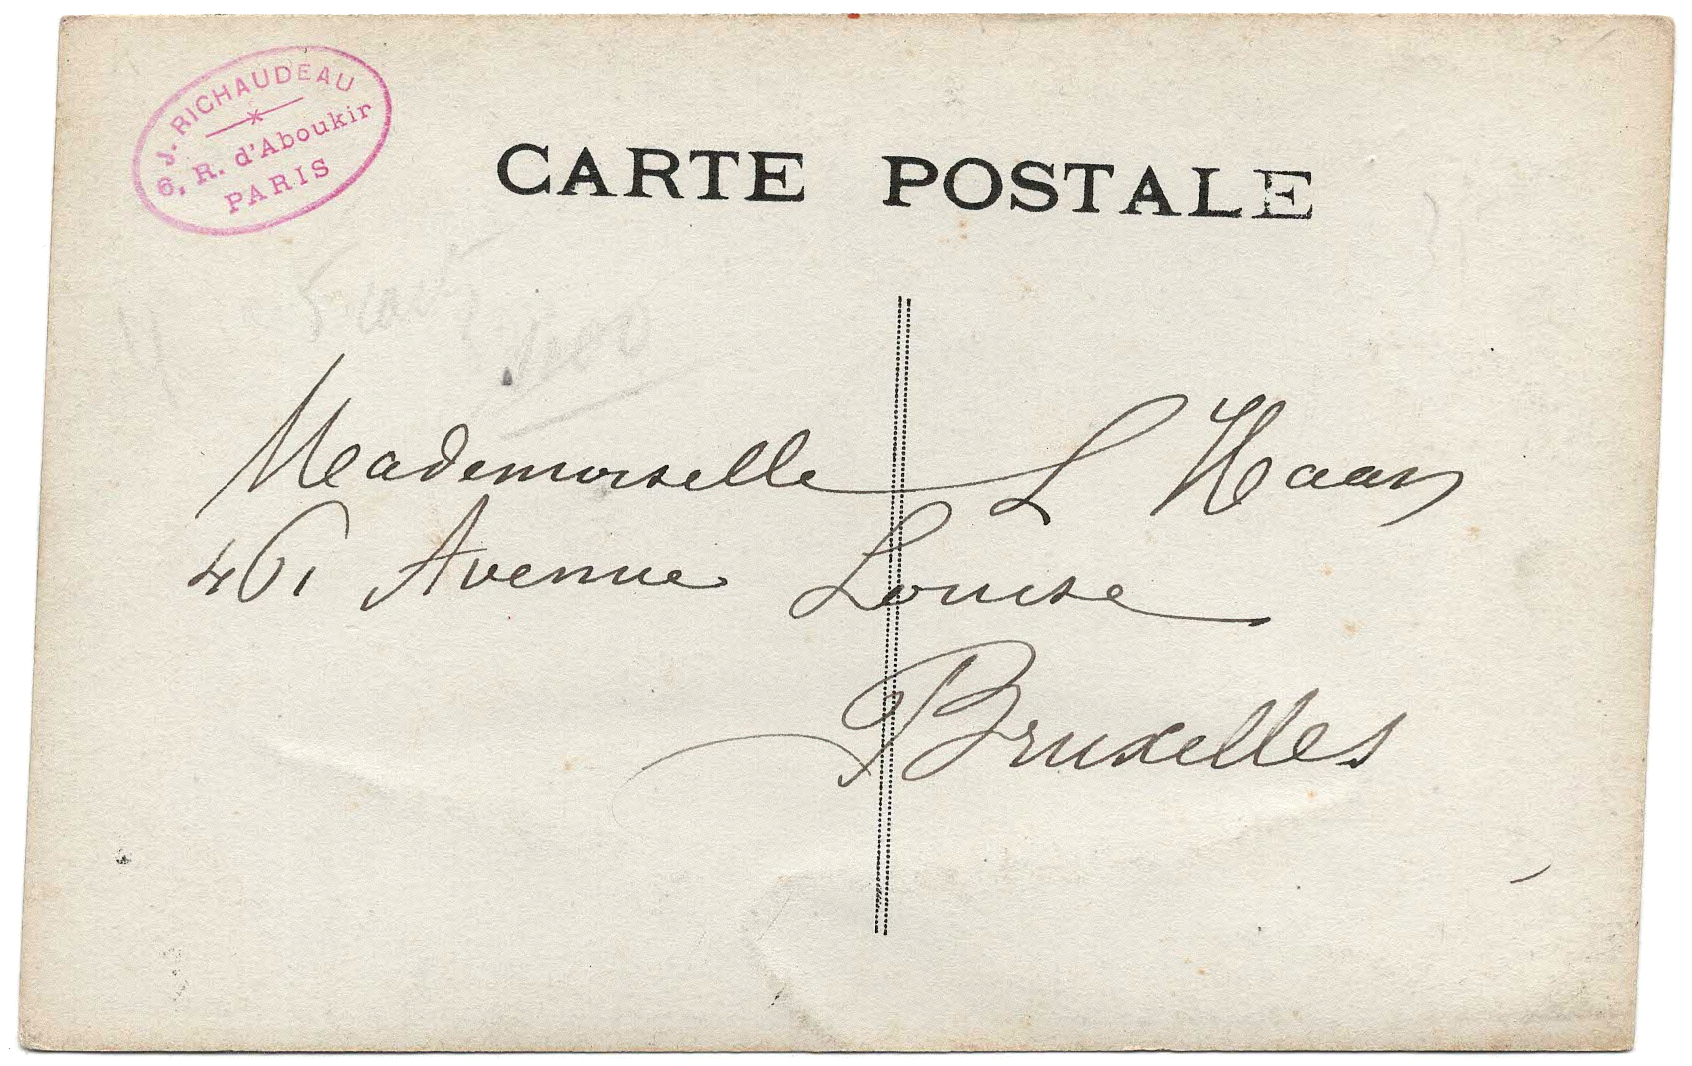 J. RICHAUDEAU
6, R. d'Aboukir
PARIS
CARTE POSTALE
Mademoiselle L Haas
461 Avenue Louise
Bruxelles